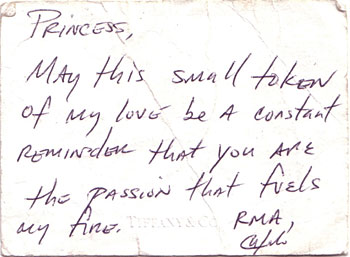 Princess,
May this small token
of my love be a constant
reminder that you are
the passion that fuels
my fire. TIFFANY & CO
RMA,